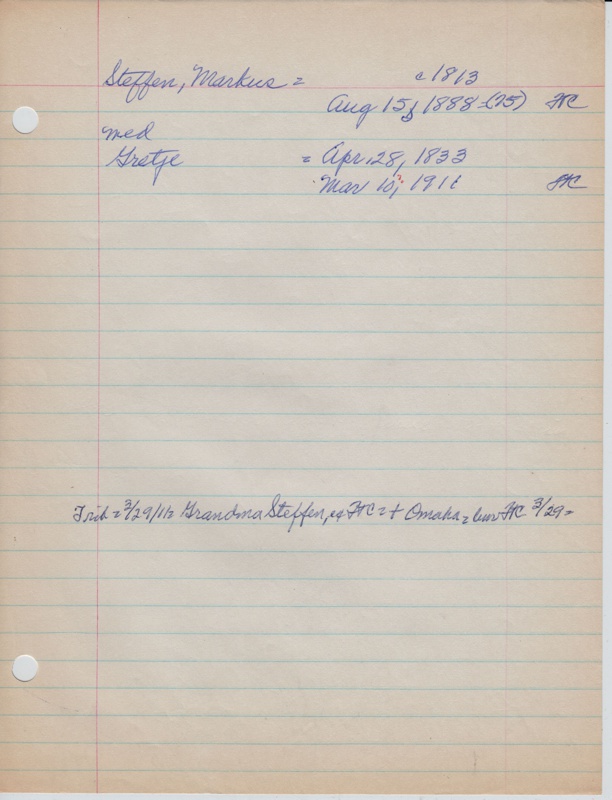 Steffen, Markus = c 1813
Aug 15, 1888 (75) FC
med
Gretje = Apr. 28, 1833
Mar 10,? 1911 FC
Trib = 3/29/11= Grandma Steffen, FC = + Omaha = bur FC 3/29 =